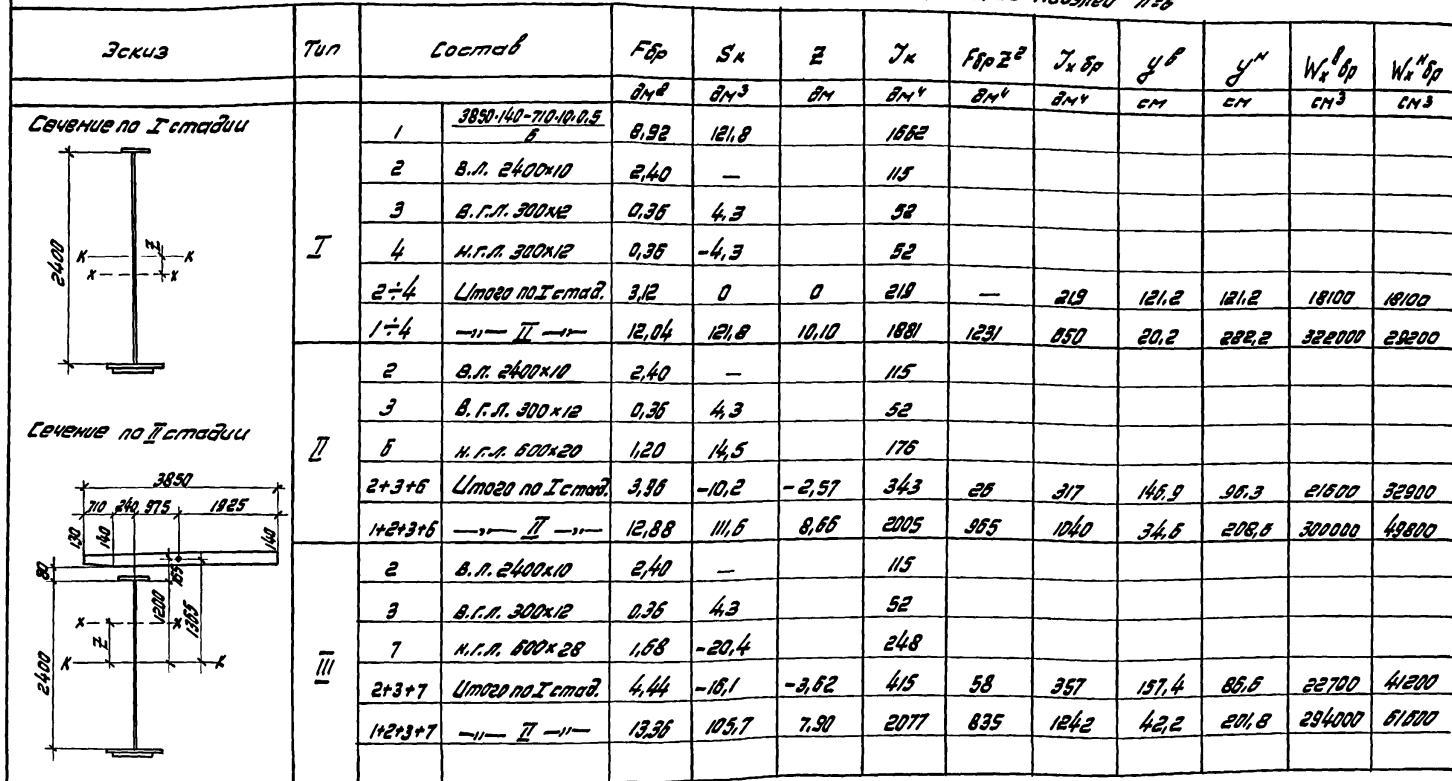 n=6
Эскиз Тип Состав Fбр Sк Z Jк FбрZ² Jх бр yᵇ yᴺ Wхᵇ бр Wхᴺ бр
дм² дм³ дм дм⁴ дм⁴ дм⁴ см см см³ см³
Сечение по I стадии
2400
К Z К
х х
I
1 3850·140-710·10·0,5 / 6 8,92 121,8 1662
2 В.Л. 2400×10 2,40 — 115
3 В.Г.Л. 300×12 0,36 4,3 52
4 Н.Г.Л. 300×12 0,36 -4,3 52
2÷4 Итого по I стад. 3,12 0 0 219 — 219 121,2 121,2 18100 18100
1÷4 —„— II —„— 12,04 121,8 10,10 1881 1231 650 20,2 222,2 322000 29200
Сечение по II стадии
3850
710 240 975 1925
130 140 140
80 165
1200 1365
х Z х
К К
2400
II
2 В.Л. 2400×10 2,40 — 115
3 В.Г.Л. 300×12 0,36 4,3 52
6 Н.Г.Л. 600×20 1,20 14,5 176
2+3+6 Итого по I стад. 3,96 -10,2 -2,57 343 26 317 146,9 96,3 21600 32900
1+2+3+6 —„— II —„— 12,88 111,6 8,66 2005 965 1040 34,6 208,6 300000 49800
III
2 В.Л. 2400×10 2,40 — 115
3 В.Г.Л. 300×12 0,36 4,3 52
7 Н.Г.Л. 600×28 1,68 -20,4 248
2+3+7 Итого по I стад. 4,44 -16,1 -3,62 415 58 357 157,4 86,6 22700 41200
1+2+3+7 —„— II —„— 13,36 105,7 7,90 2077 835 1242 42,2 201,8 294000 61600